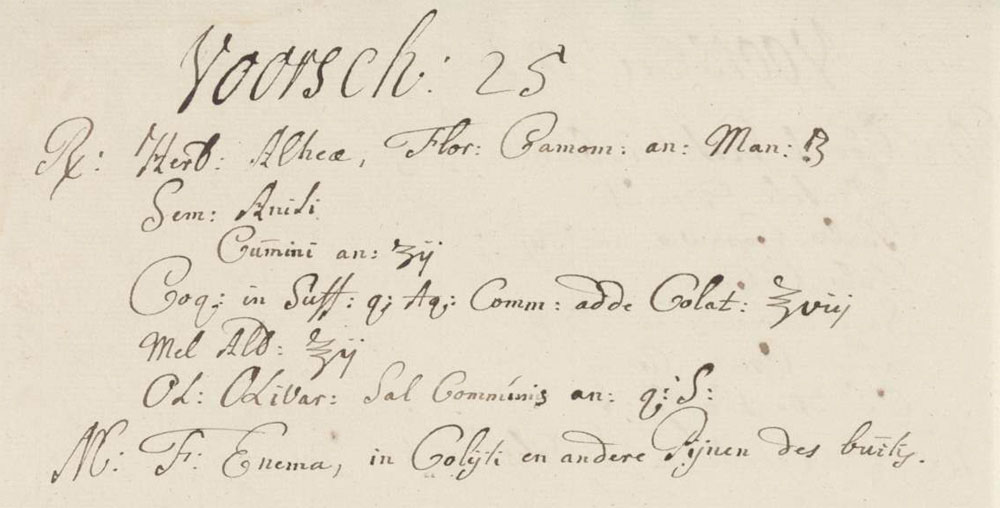 Voorsch: 25
Rx: Herb: Alheæ, Flor: Camom: an: Man: ß
Sem: Anisi
Cum̄ini an: ʒij
Coq: in Suff: q: Aq: Comm: adde Colat: ℥viij
Mel Alb: ℥ij
OL: OLivar: Sal Comm̄inis an: q: S:
M: F: Enema, in Colijti en andere Pijnen des buiks.